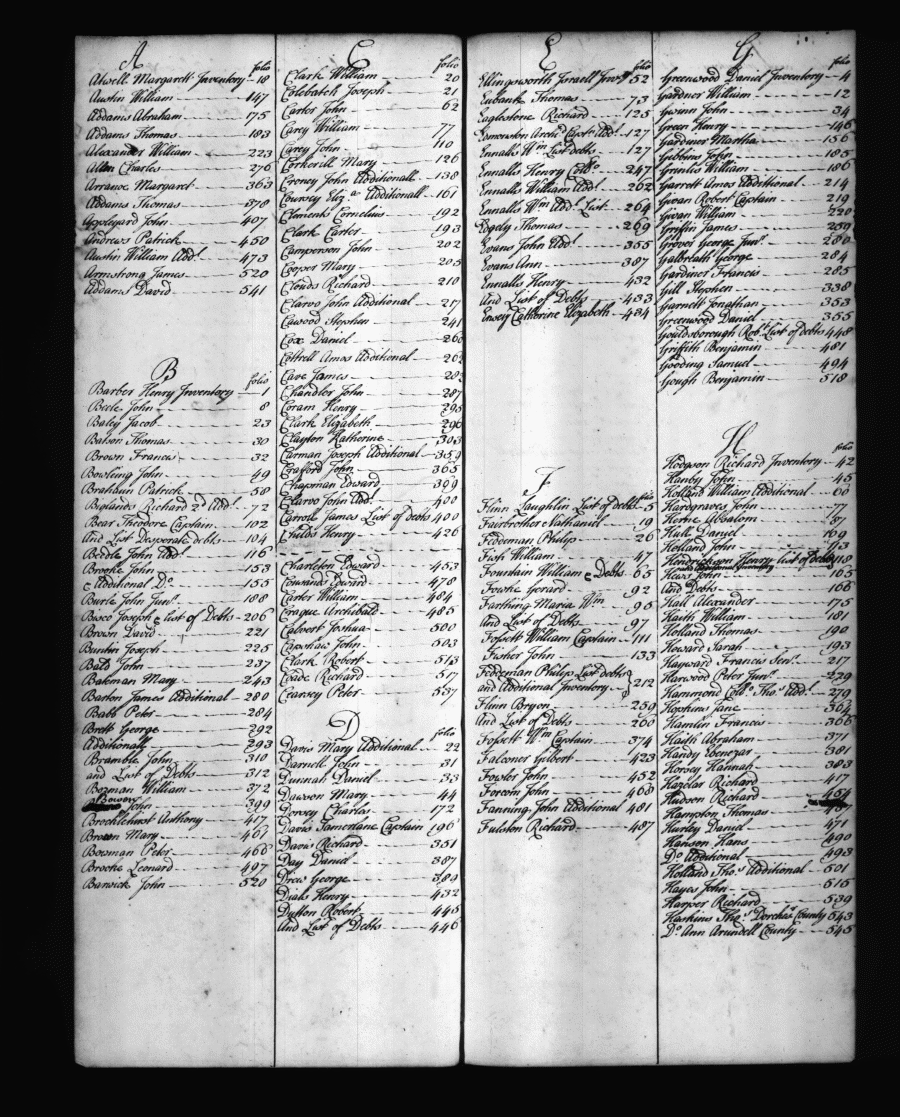 A
folio
Atwell Margarett Inventory 18
Austin William 147
Addams Abraham 175
Addams Thomas 183
Alexander William 223
Allen Charles 276
Arranoe Margaret 363
Addams Thomas 378
Appleyard John 407
Andrews Patrick 450
Austin William Addl 473
Armstrong James 520
Addams David 541
B
folio
Barber Henry Inventory 1
Beele John 8
Baley Jacob 23
Batson Thomas 30
Brown Francis 32
Bowling John 49
Brahaun Patrick 58
Biglands Richard 2d Addl 72
Bear Theodore Captain 102
And List Desperate debts 104
Beedle John Addl 116
Brooke John 153
e Additional Do 155
Burle John Junr 188
Bisco Joseph e List of Debts 206
Brown David 221
Buntin Joseph 225
Ball John 237
Bateman Mary 243
Barton James Additional 280
Babb Peter 284
Brett George 292
Additionall 293
Bramble John 310
and List of Debts 312
Bozman William 372
John 399
Brocklehurst Anthony 417
Brown Mary 461
Bowman Peter 466
Brooke Leonard 497
Barwick John 520
C
folio
Clark William 20
Colebatch Joseph 21
Carter John 62
Carey William 77
Carey John 110
Corkerill Mary 126
Croney John Additionall 138
Coursey Eliza Additionall 161
Clements Cornelius 192
Clark Carter 193
Camperson John 202
Cooper Mary 205
Clouds Richard 210
Clarvo John Additional 217
Cawood Stephen 241
Cox Daniel 260
Cottrell Amos Additional 262
Cave James 283
Chandler John 287
Coram Henry 295
Clark Elizabeth 296
Clayton Katherine 303
Carman Joseph Additional 359
Crafford John 365
Chapman Edward 399
Clarvo John Addl 400
Carroll James List of debts 400
Childs Henry 426
Charleton Edward 453
Cowsand Edward 478
Carter William 484
Cragus Archibald 485
Calvert Joshua 500
Capshaw John 503
Clark Robert 513
Coade Richard 517
Cranxey Peter 537
D
folio
Davis Mary Additional 22
Darnell John 31
Dunnah Daniel 33
Dawson Mary 44
Dorsey Charles 172
Davis Tamerlane Captain 196
Davis Richard 351
Day Daniel 387
Drew George 389
Dials Henry 432
Dutton Robert 445
And List of Debts 446
E
folio
Ellingsworth Israell Invy 52
Eubank Thomas 73
Eaglestone Richard 125
Emerston Archd Captn Addl 127
Ennalls Wm List debts 127
Ennalls Henry Collo 247
Ennalls William Addl 262
Ennalls Wm Addl List 264
Edgely Thomas 269
Evans John Addl 355
Evans Ann 387
Ennalls Henry 432
And List of Debts 433
Ensey Catherine Elizabeth 434
F
folio
Flinn Laughlin List of debts 5
Fairbrother Nathaniel 19
Feddeman Philip 26
Fish William 47
Fountain William e Debts 65
Fowke Gerard 92
Farthing Maria Wm 95
And List of Debts 97
Fossett William Captain 111
Fisher John 133
Feddeman Philip List debts
and Additional Inventory 212
Flinn Bryon 259
And List of Debts 260
Fossett Wm Captain 374
Falconer Gilbert 423
Fowler John 452
Forcom John 468
Fanning John Additional 481
Fulston Richard 487
G
folio
Greenwood Daniel Inventory 4
Gardner William 12
Gwinn John 34
Green Henry 146
Gardiner Martha 156
Gibbins John 185
Grintis William 186
Garrett Amos Additional 214
Gwan Robert Captain 219
Gwan William 220
Griffin James 269
Grover George Junr 280
Galbreath George 284
Gardiner Francis 285
Gill Stephen 338
Garnett Jonathan 353
Greenwood Daniel 355
Gouldsborough Robt List of debts 448
Griffith Benjamin 481
Gooding Samuel 494
Gough Benjamin 518
H
folio
Hodgson Richard Inventory 42
Hanby John 45
Holland William Additional 66
Hardgraves John 77
Herne Absalom 87
Hull Daniel 109
Holland John 113
Hendrickson Henry List of debts 118
Hews John 165
And Debts 166
Hall Alexander 175
Haith William 181
Holland Thomas 190
Howard Sarah 193
Hayward Francis Senr 217
Harwood Peter Junr 229
Hammond Collo Thos Addl 279
Hopkins Jane 364
Hamlin Francis 366
Haith Abraham 371
Handy Ebenezar 381
Horsey Hannah 383
Hazelar Richard 417
Hudson Richard 454
Hampton Thomas
Hurley Daniel 471
Hanson Hans 490
Do Additional 493
Holland Thos Additional 501
Hayes John 515
Harper Richard 539
Haskins Thos Dorchr County 543
Do Ann Arundell County 545